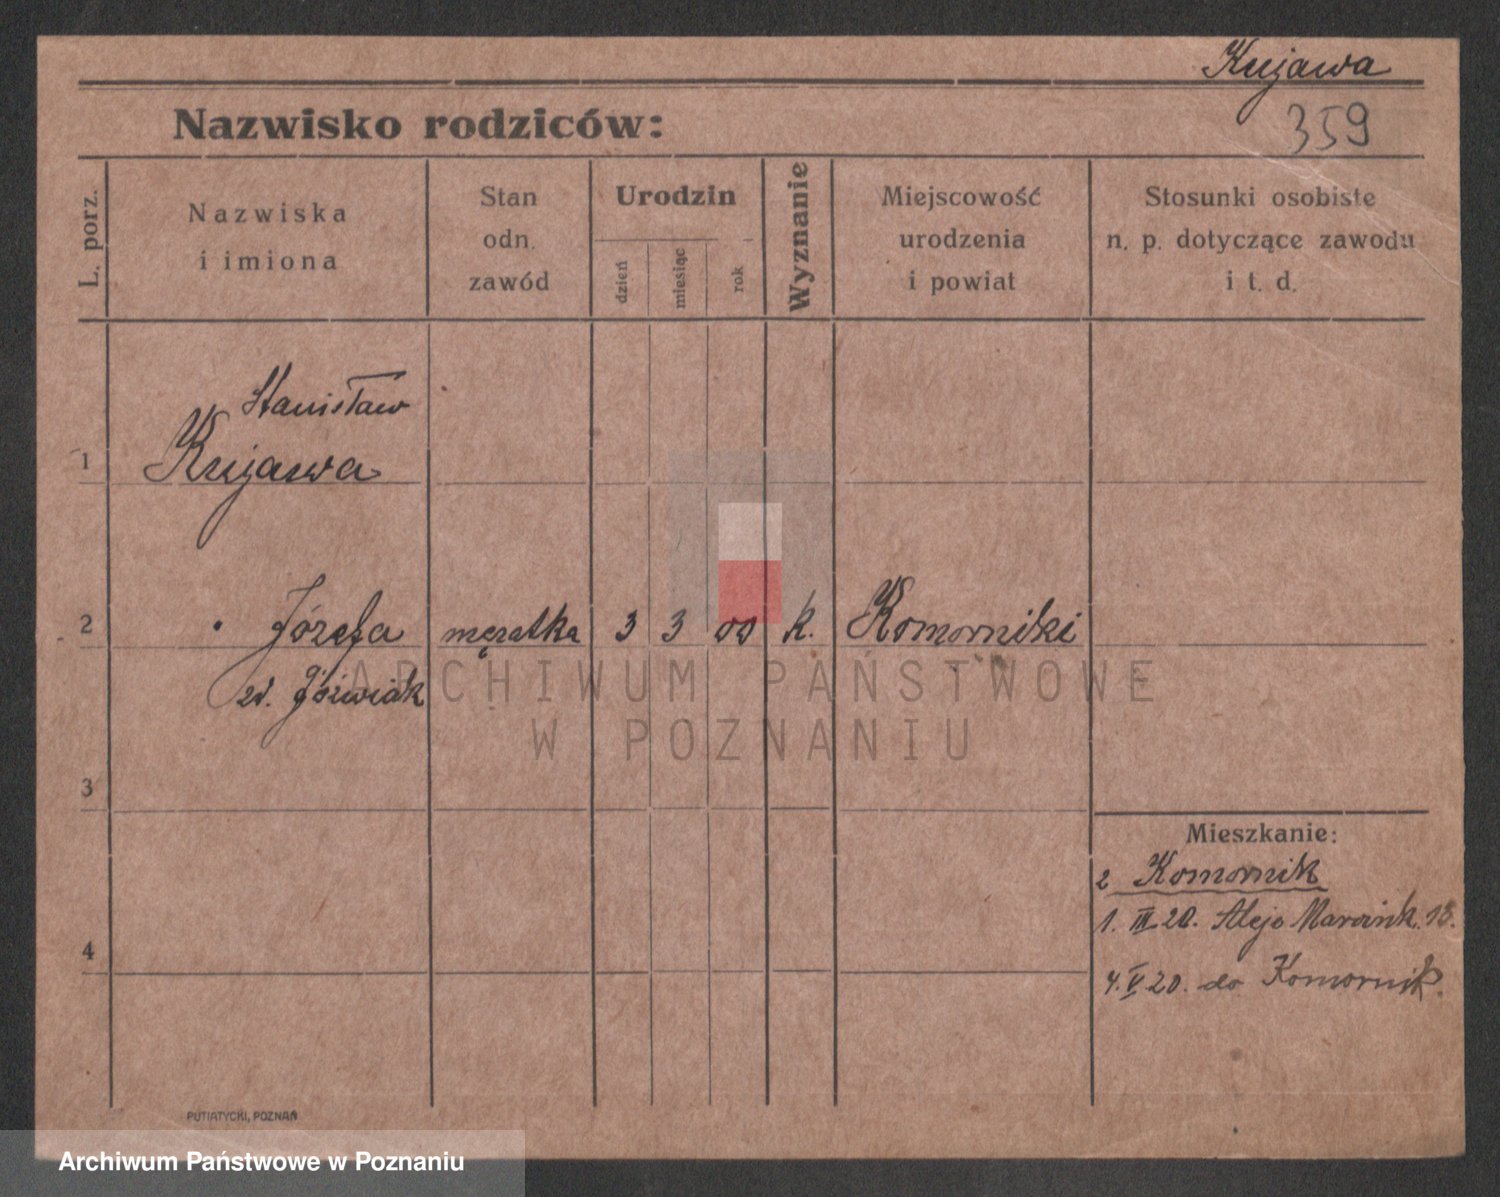 Kujawa
Nazwisko rodziców:
359
L. porz.
Nazwiska
i imiona
Stan
odn.
zawód
Urodzin
dzień
miesiąc
rok
Wyznanie
Miejscowość
urodzenia
i powiat
Stosunki osobiste
n. p. dotyczące zawodu
i t. d.
Stanisław
1 Kujawa
2 Józefa mężatka 3 3 00 k. Komorniki
Jóźwiak
ARCHIWUM PAŃSTWOWE
W POZNANIU
3
Mieszkanie:
z Komornik
1. III 20. Aleje Marcink. 13.
4
4. V 20. do Komornik.
PUTIATYCKI, POZNAŃ
Archiwum Państwowe w Poznaniu